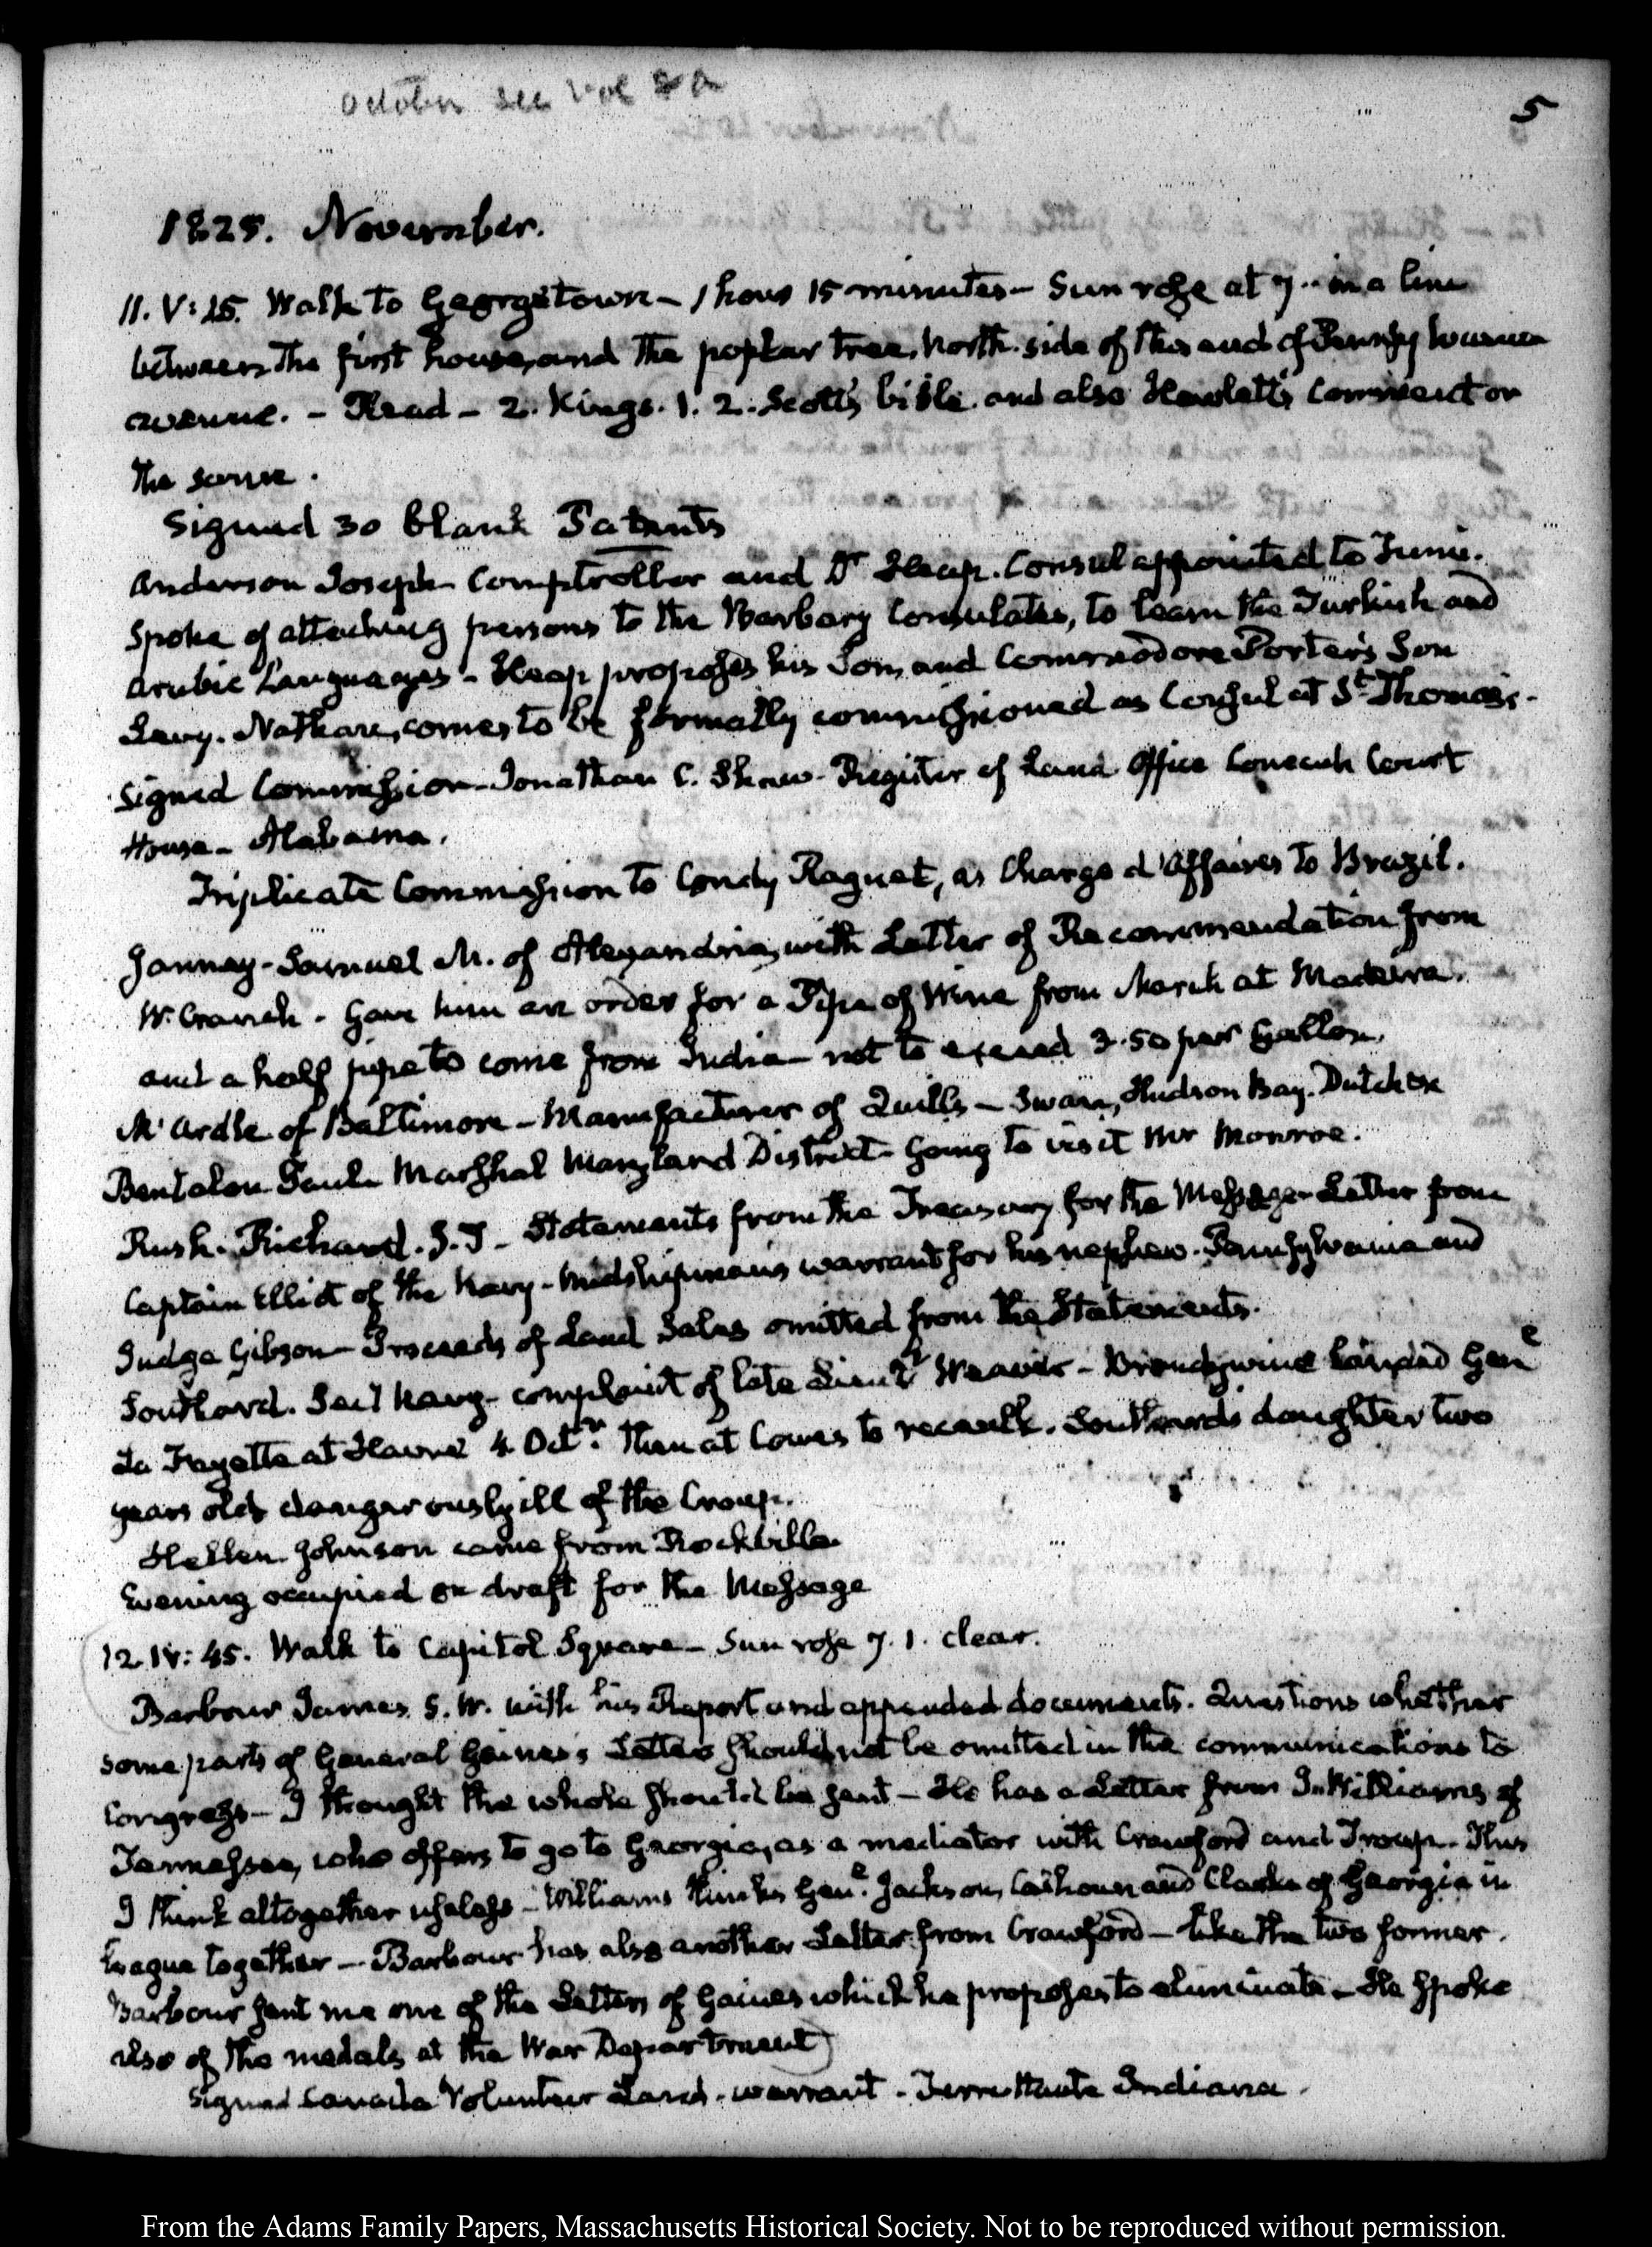 October see vol
5
1825. November.
11. V:15. Walk to Georgetown – 1 hour 15 minutes – Sun rose at 7.. in a line
between the first house, and the poplar tree, North side of this end of Pennsylvania
avenue. – Read – 2. Kings. 1. 2. Scott's bible and also Hewlett's Comment on
the same.
Signed 30 blank Patents
Anderson Joseph – Comptroller and Dr Heap. Consul appointed to Tunis.
Spoke of attaching persons to the Barbary Consulates, to learn the Turkish and
Arabic Languages – Heap proposes his Son, and Commodore Porter's Son
Levy. Nathan, comes to be formally commissioned as Consul at St. Thomas's –
Signed Commission – Jonathan C. Shaw – Register of Land Office Conecuh Court
House – Alabama.
Triplicate Commission to Condy Raguet, as Chargé d'Affaires to Brazil.
Janney – Samuel M. of Alexandria, with Letter of Recommendation from
W. Cranch – Gave him an order for a Pipe of Wine from March at Madeira.
and a half pipe to come from India – not to exceed 3.50 per Gallon.
McArdle of Baltimore – Manufacturer of Quills – Swan, Hudson Bay. Dutch
Bentalou Paul – Marshal Maryland District – Going to visit Mr Monroe.
Rush. Richard. S. T – Statements from the Treasury for the Message – Letter from
Captain Elliot of the Navy – Midshipman's warrant for his nephew. Pennsylvania and
Judge Gibson – Proceeds of Land Sales omitted from the Statements.
Southard. Navy – complaint of late Lieutt Weaver – Brandywine landed Genl
La Fayette at Havre 4 Octr. Then at Cowes to recaulk. Southard's daughter two
years old, dangerously ill of the Croup.
Hellen Johnson came from Rockville
Evening occupied on draft for the Message
12. IV:45. Walk to Capitol Square – Sun rose 7.1. clear.
Barbour James. S. W. with his Report and appended documents. Questions whether
some parts of General Gaines's Letters should not be omitted in the communications to
Congress – I thought the whole should be sent – He has a Letter from J. Williams of
Tennessee, who offers to go to Georgia, as a mediator with Crawford and Troup. This
I think altogether useless – Williams thinks Genl. Jackson, Calhoun and Clarke of Georgia in
league together – Barbour has also another Letter from Crawford – like the two former.
Barbour sent me one of the Letters of Gaines which he proposes to eliminate – He spoke
also of the medals at the War Department
Signed Canada Volunteer Land – warrant – Terre Haute Indiana.
From the Adams Family Papers, Massachusetts Historical Society. Not to be reproduced without permission.